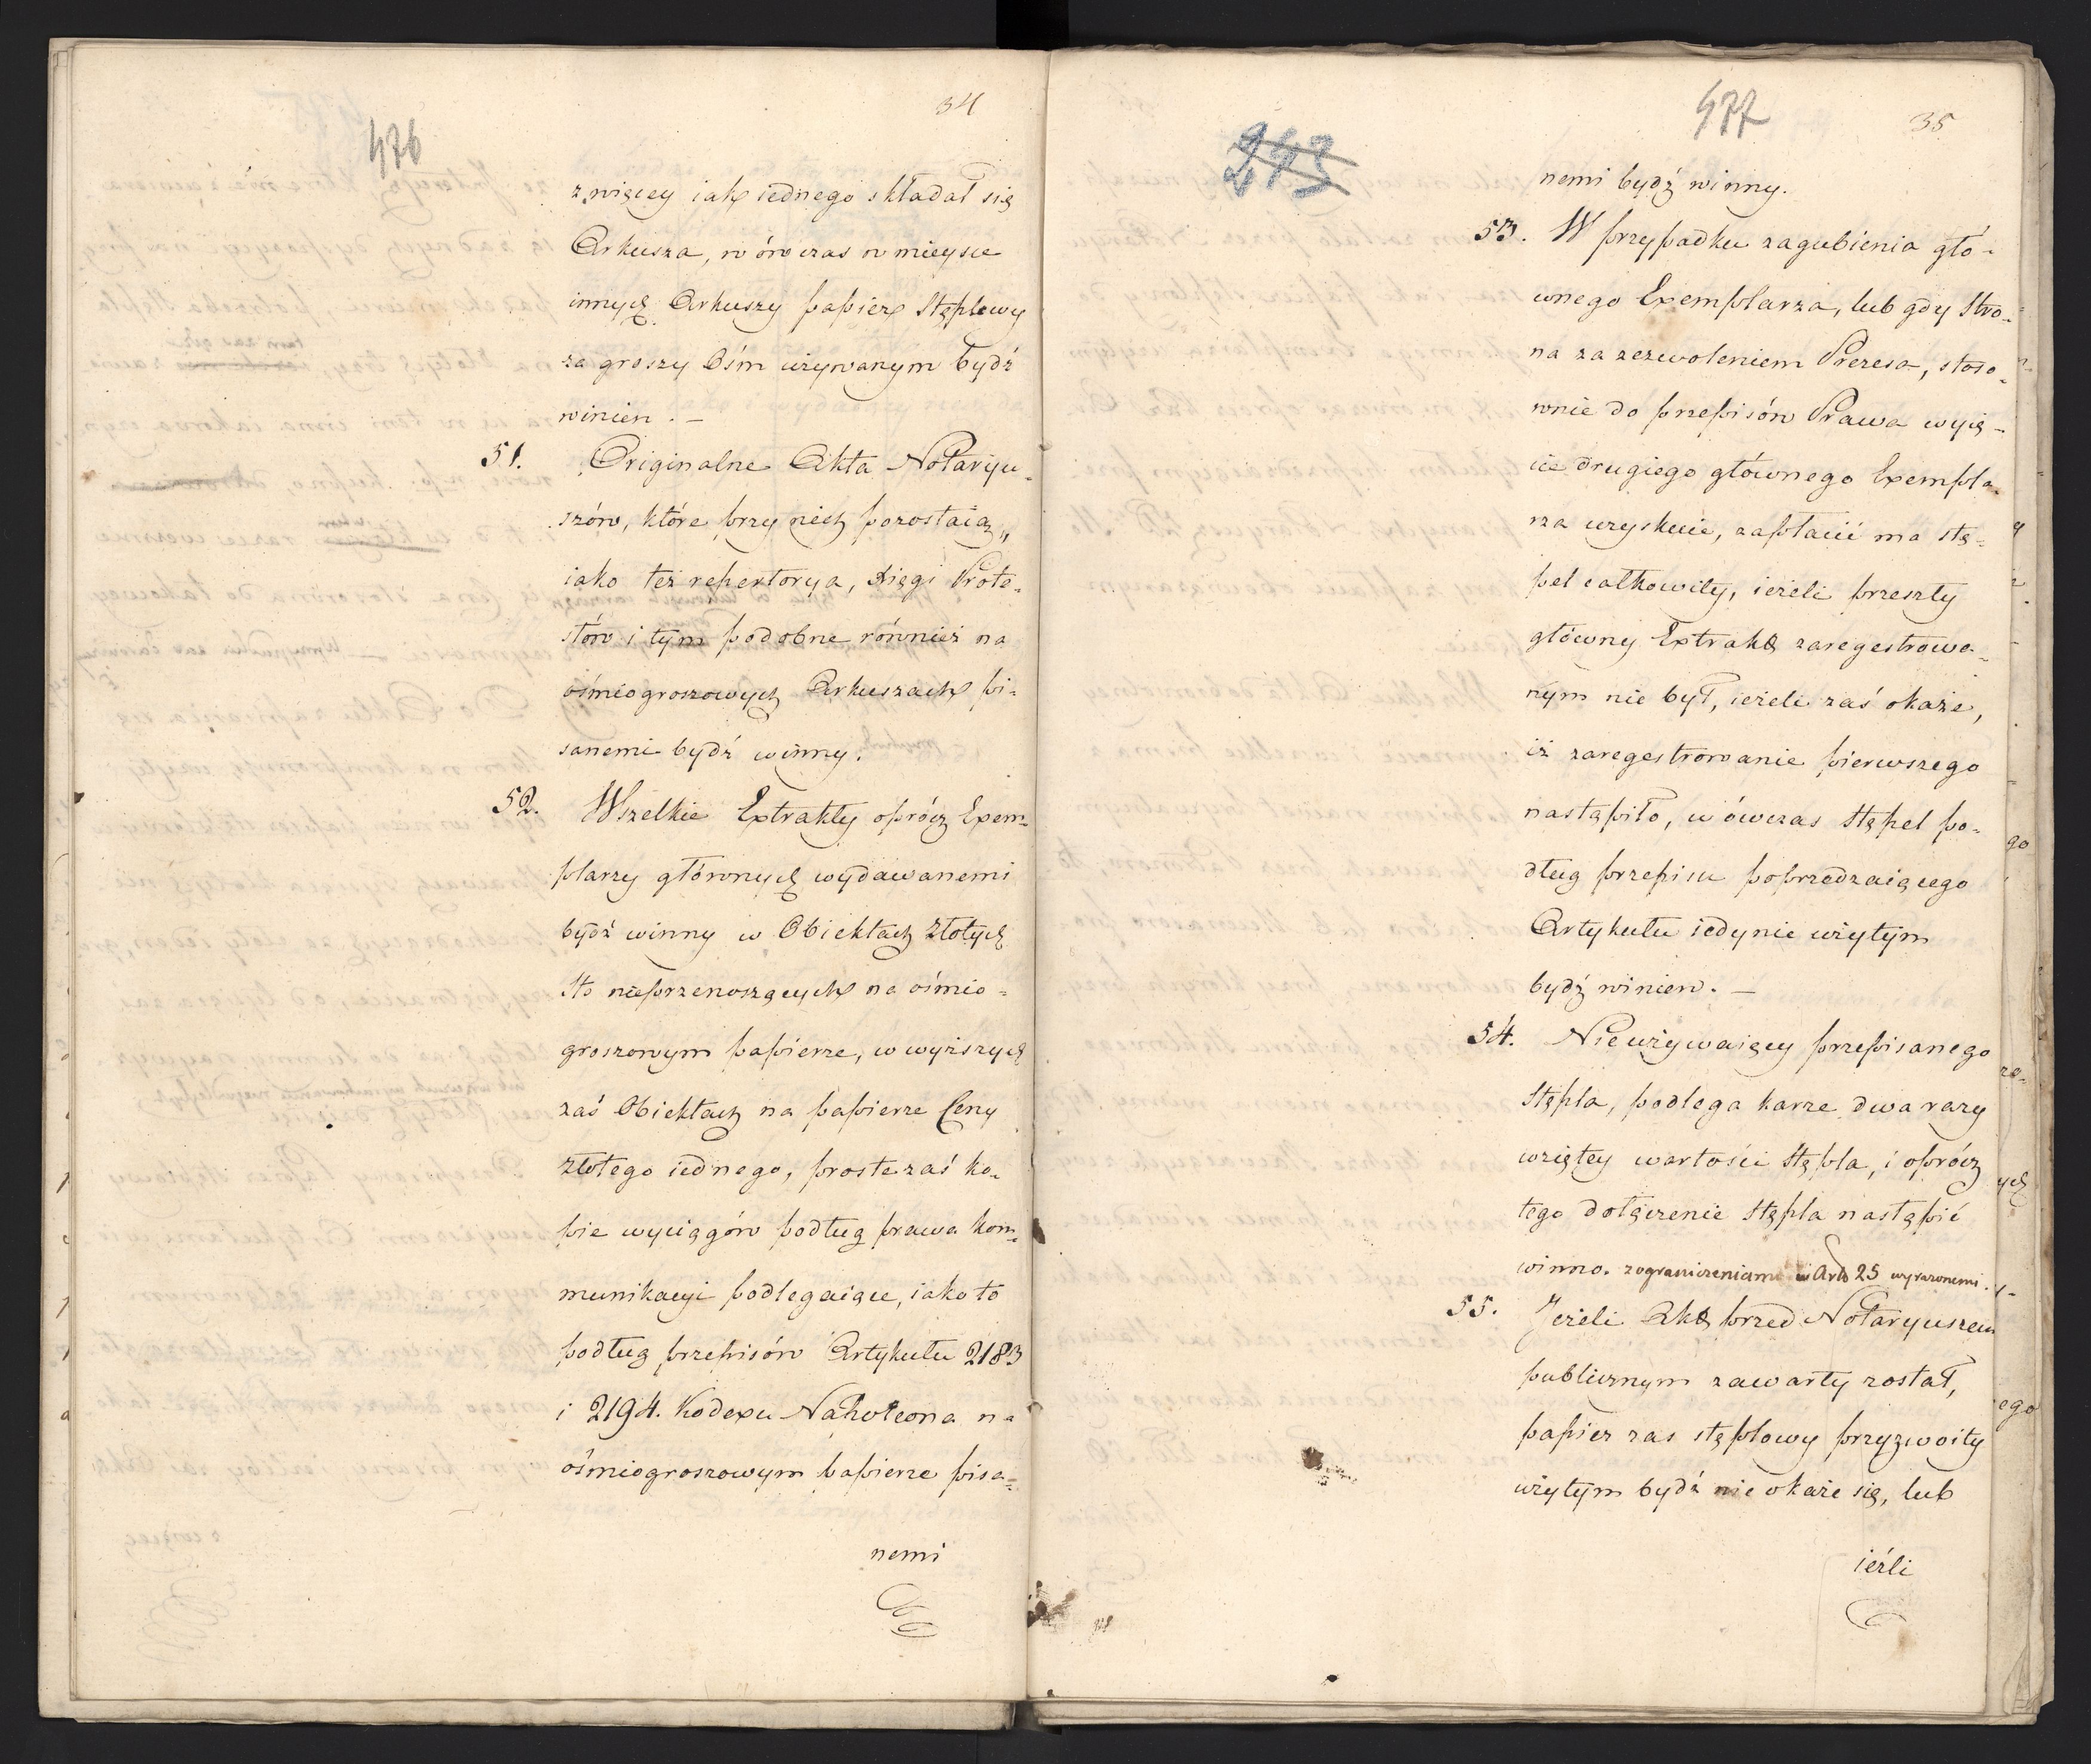 34
476
z więcey iak iednego składał się
Arkusza, w ów czas w mieysce
innych Arkuszy papier Stęplowy
za groszy Ośm używanym bydź
winien. —
51. Originalne Akta Notaryu-
szów, które przy nich pozostaią,
iako też repertorya, xięgi Prote-
stów i tym podobne również na
ośmiogroszowych Arkuszach pi-
sanemi bydź winny.
52. Wszelkie Extrakty oprócz Exem-
plarzy głównych wydawanemi
bydź winny w Obiektach Złotych
Sto nieprzenoszących na ośmio-
groszowym papierze, w wyższych
zaś Obiektach na papierze Ceny
złotego iednego, proste zaś ko-
pie wyciągów podług prawa kom-
munikacyi podlegaiące, iako to
podług przepisów Artykułu 2183
i 2194. Kodexu Napoleona na
ośmiogroszowym papierze pisa-
nemi
477
35
243
nemi bydź winny.
53. W przypadku zagubienia głó-
wnego Exemplarza, lub gdy Stro-
na za zezwoleniem Prezesa, stoso-
wnie do przepisów Prawa wyię-
cie drugiego głównego Exempla-
rza uzyskuie, zapłacić ma stę-
pel całkowity, ieżeli przeszły
główny Extrakt zaregestrowa-
nym nie był, ieżeli zaś okaże,
iż zaregestrowanie pierwszego
nastąpiło, w ówczas stępel po-
dług przepisu poprzedzaiącego
Artykułu iedynie użytym
bydź winien. —
54. Nieużywaiący przepisanego
Stępla, podlega karze dwa razy
wziętey wartości Stępla, i oprócz
tego dołączenie stępla nastąpić
winno. z ograniczeniami w Art 25 wyrażonemi.
55. Jeżeli Akt przed Notaryuszem
publicznym zawarty został,
papier zas stęplowy przyzwoity
użytym bydź nie okaże się, lub
ieźli